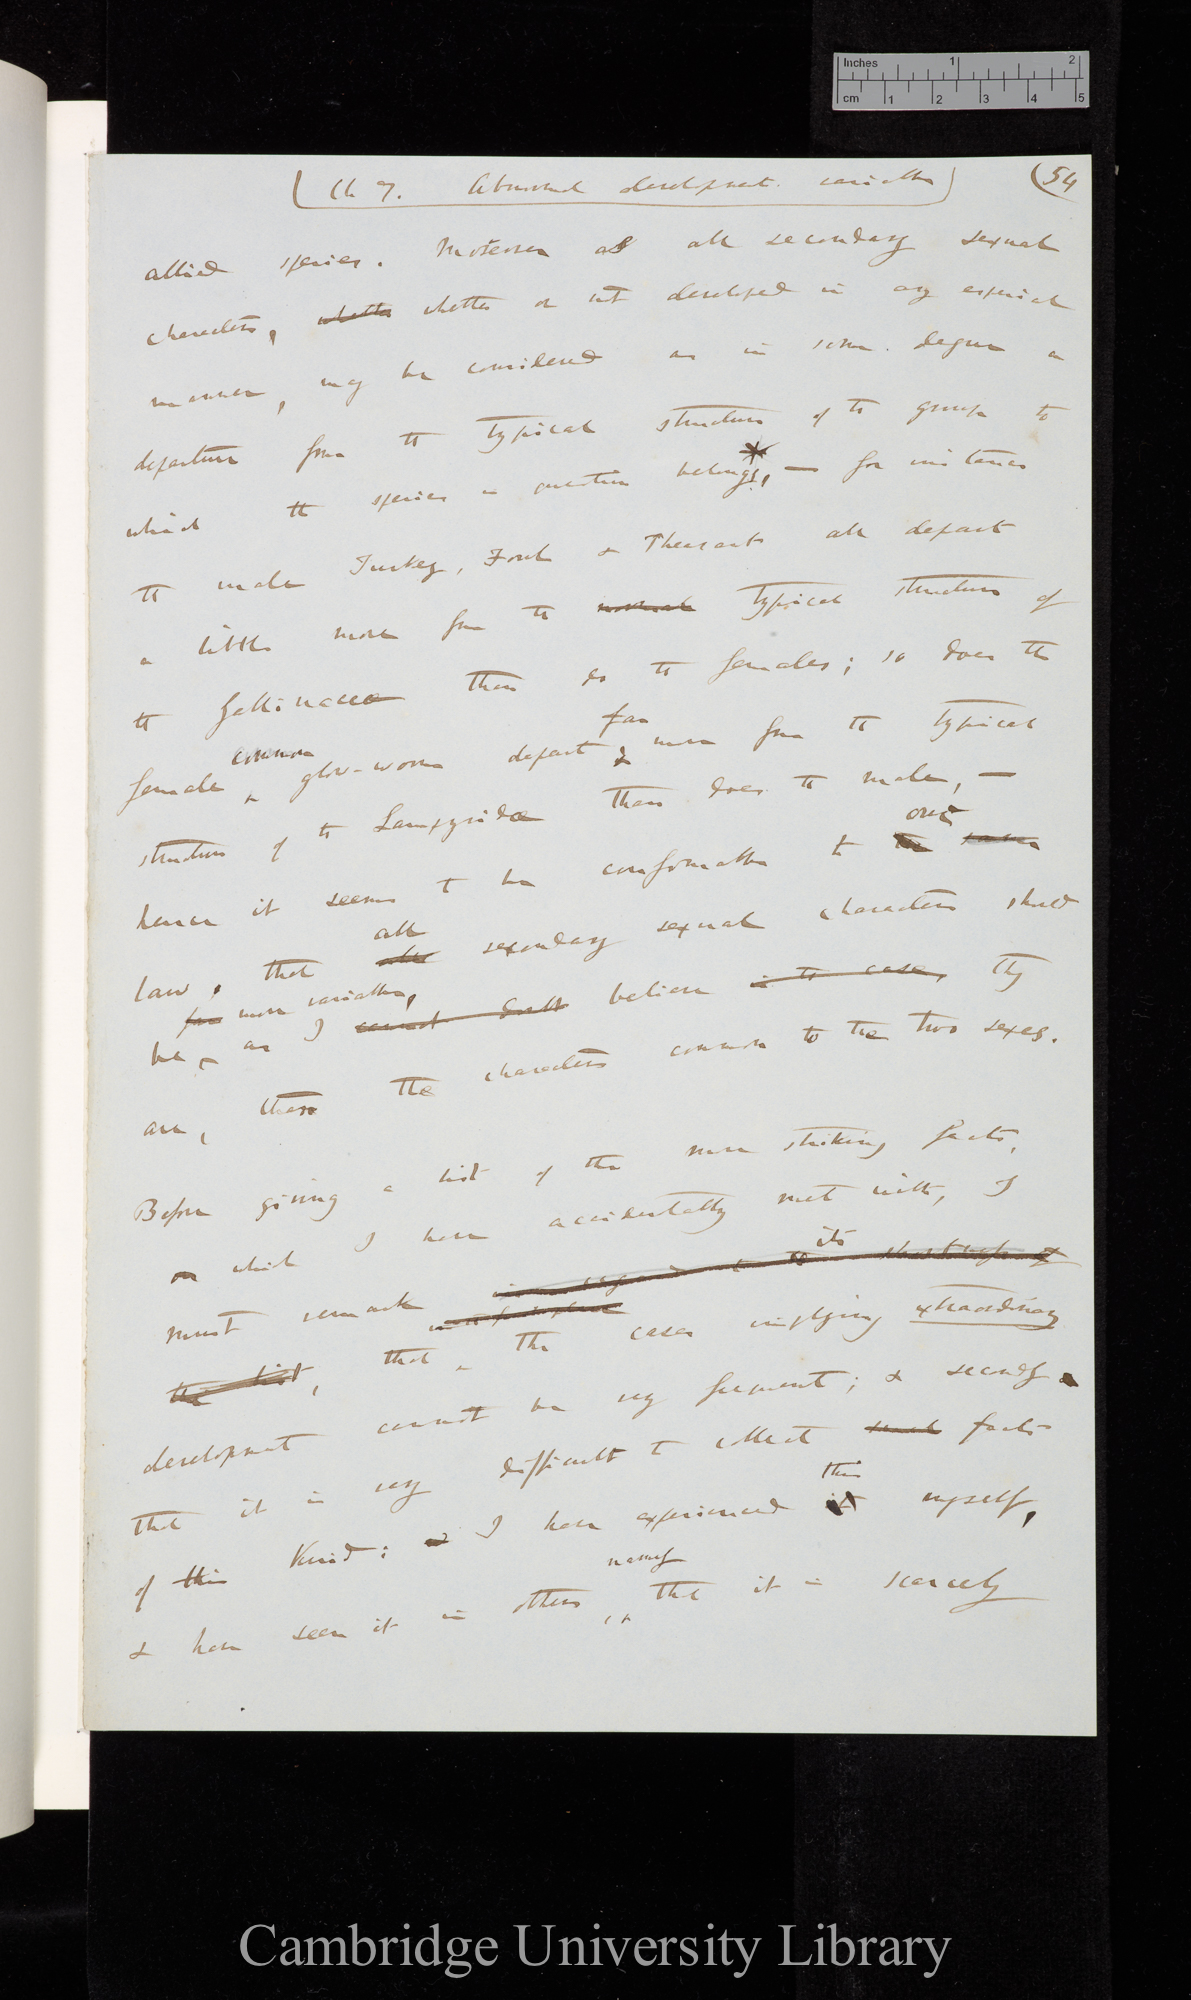 Inches 1 2
cm 1 2 3 4 5
Ch 7. Abnormal development. variable
54
allied species. Moreover as all secondary sexual
characters, whether whether or not developed in any especial
manner, may be considered as in some degree a
departure from the typical structure of the group to
which the species in question belongs, — for instance
the male Turkey, Fowl & Pheasants all depart
a little more from the normal typical structure of
the Gallinaceæ than do the females; so does the
female common glow-worm depart far more from the typical
structure of the Lampyridæ than does the male, —
hence it seems to be conformable to the same our
law, that all secondary sexual characters should
be far more variable, as I cannot doubt believe in the case, they
are, than the characters common to the two sexes.
Before giving a list of the more striking facts,
on which I have accidentally met with, I
must remark its
the list, that in the cases implying extraordinary
development cannot be very frequent; & secondly
that it is very difficult to collect such facts
of this kind: & I have experienced it this myself,
& have seen it in others, namely that it is scarcely
Cambridge University Library